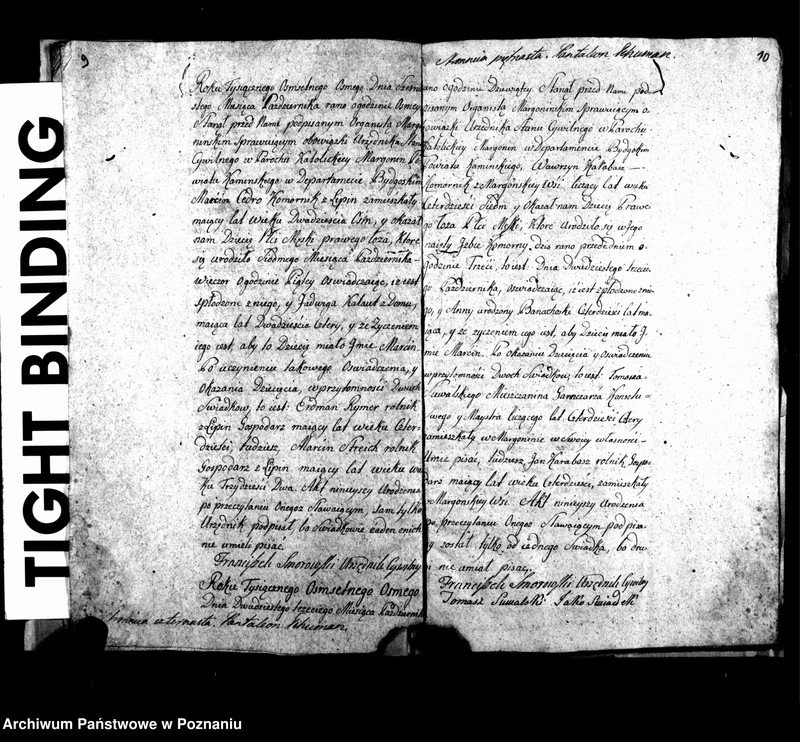 TIGHT BINDING
9
Roku Tysiącznego Osmsetnego Osmego Dnia
stego Miesiąca Października rano ogodzinie Osmey
Stanął przed Nami podpisanym Organistą
ninskim Sprawuiącym obowiązki Urzędnika Stanu
Cywilnego w Parochii Katolickiey Margonin Po
wiatu Kaminskiego w Departamencie Bydgoskim
Marcin Cedro Komornik z Lipin zamieszkały
maiący lat wieku Dwadziescia Osm, y okazał
nam Dziecię Płci Męski prawego łoża, Ktore
się urodziło Siodmego Miesiąca Października
wieczor ogodzinie Piątey oswiadczaiąc, iż iest
spłodzone z niego, y Jadwigą Kalaut z Domu,
maiącą lat Dwadziescia Cztery, y że życzeniem
iego iest, aby to Dziecię miało Imie Marcin.
Po uczynieniu takowego Oswiadczenia, y
Okazania Dziecięcia, w przytomności Dwoch
Swiadkow, to iest: Erdman Rymer rolnik
z Lipin Gospodarz maiący lat wieku Czter-
dzieści, tudziesz, Marcin Streich rolnik
Gospodarz z Lipin maiący lat wieku wie
ku Trzydzieści Dwa. Akt ninieyszy Urodzenia
po przeczytaniu Onegoż Stawaiącym, sam tylko
Urzędnik podpisał, bo Swiadkowie żaden z nich
nie umieli pisać
Franciszek Smorowski Urzędnik Cywilny
Roku Tysiącznego Osmsetnego Osmego
Dnia Dwudziestego trzeciego Miesiąca Październik
Pantaleon Schuman.
Pantaleon Schuman.
10
rano ogodzinie Dziewiątey Stanął przed Nami pod-
pisanym Organistą Margoninskim Sprawuiącym o-
bowiązki Urzędnika Stanu Cywilnego w Parochii
Katolickiey Margonin w Departamencie Bydgoskim
Powiatu Kaminskiego, Wawrzyn Karabasz
Komornik z Margonskiey Wsi liczący lat wieku
Czterdzieści Siedm y Okazał nam Dziecię Prawe-
go łoża Płci Męski, Ktore urodziło się w iego
naięty Izbie Komorny dzis rano przededniem o-
godzinie Trzeci, to iest: Dnia Dwudziestego trzecie-
go Października, oswiadczaiąc, iż iest spłodzone z nie-
go, y Anny urodzony Banachoski Czterdzieści lat ma-
iąca, y że życzeniem iego iest, aby Dziecię miało I-
mie Marcin. Po okazaniu Dziecięcia y oswiadczeniu
w przytomności Dwoch Swiadkow, to iest: Tomasza
Suwalskiego Mieszczanina Garncarza
y Maystra liczącego lat Czterdzieści Cztery
zamieszkały w Margoninie w Swoiey własności
Umie pisać, tudziesz, Jan Karabasz rolnik Gospo-
darz maiący lat wieku Czterdzieści, zamieszkały
w Margonskiey Wsi. Akt ninieyszy Urodzenia
po przeczytaniu Onegoż Stawaiącym podpisa-
ny został tylko od iednego Swiadka, bo dru
gi nie umiał pisać.
Franciszek Smorowski Urzędnik Cywilny
Tomasz Suwalski Jako Swiadek
Archiwum Państwowe w Poznaniu